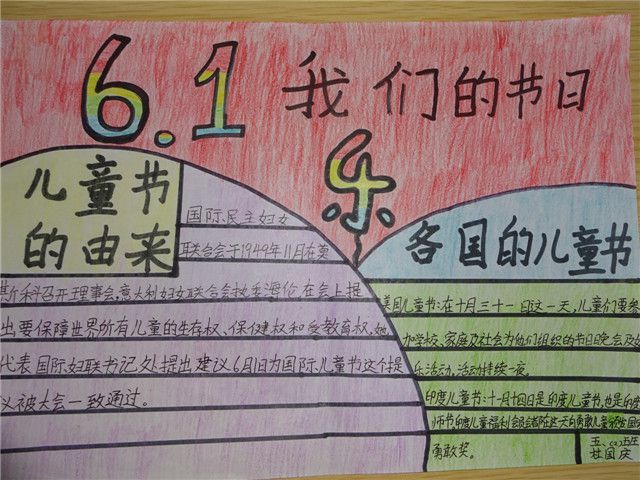 6.1 我们的节日
乐
儿童节
的由来
国际民主妇女
联合会于1949年11月在莫
斯科召开理事会,意大利妇女联合会执委海伦在会上提
出要保障世界所有儿童的生存权、保健权和受教育权,她
代表国际妇联书记处提出建议6月1日为国际儿童节这个提
议被大会一致通过。
各国的儿童节
美国儿童节:在十月三十一日这一天,儿童们要参
加学校、家庭及社会为他们组织的节日晚会及
乐活动,活动持续一夜。
印度儿童节:十一月十四日是印度儿童节,也是印度
师节印度儿童福利会
勇敢奖。
五、(2)班
杜国庆